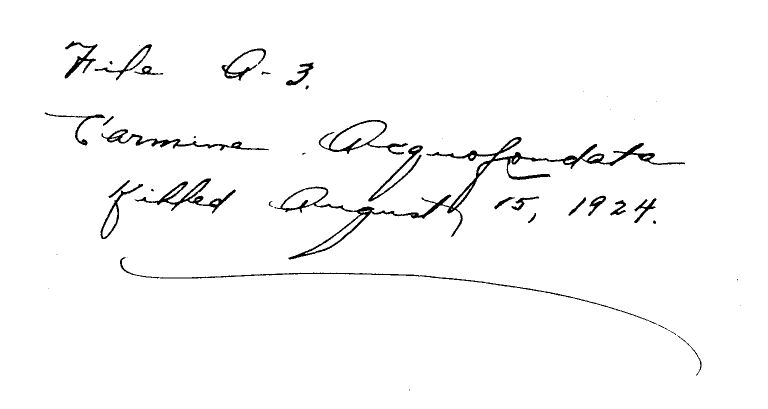 File A-3.
Carmine Acquofondata
Killed August 15, 1924.